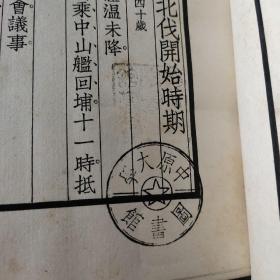 北伐開始時期
四十歲
溫未降。
乘中山艦回埔十一時抵
會議事
中原大學
圖書館